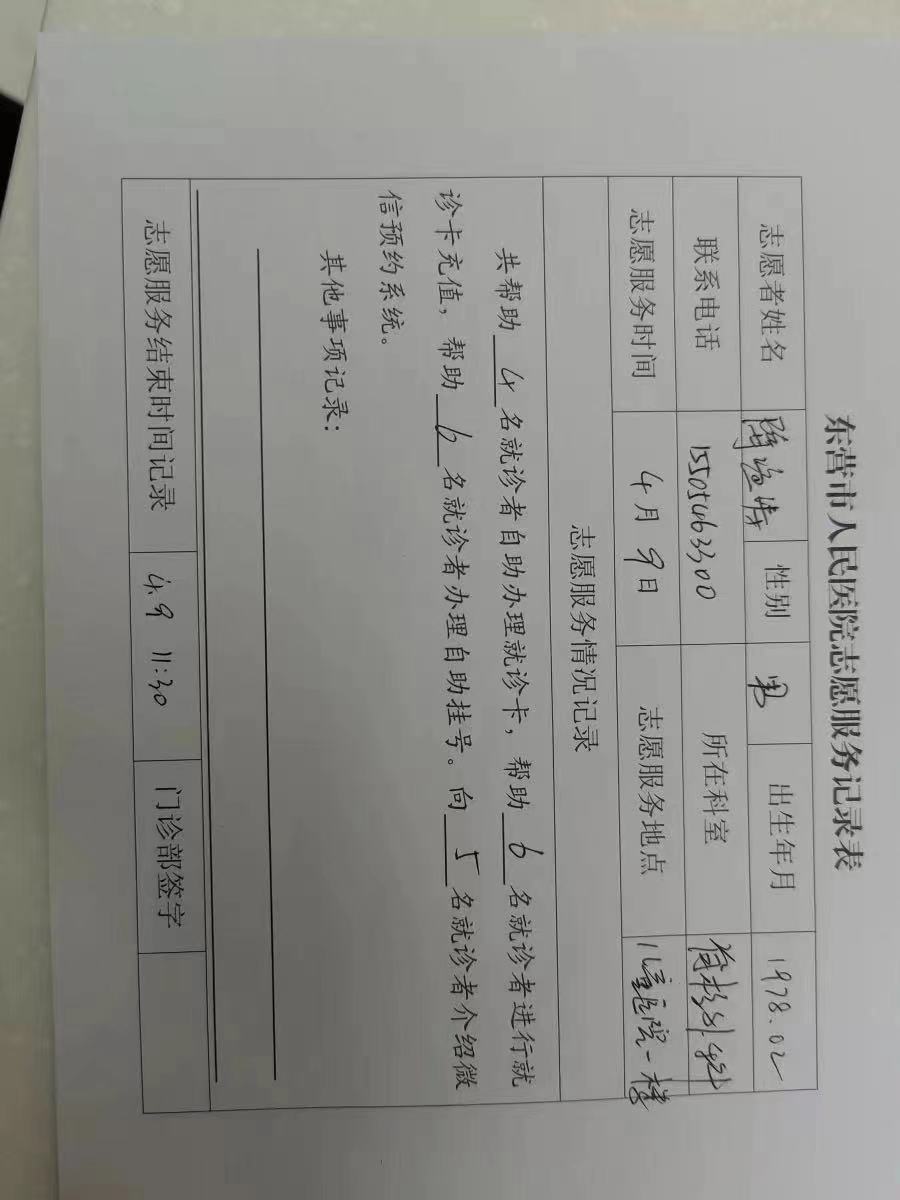 东营市人民医院志愿服务记录表
志愿者姓名 性别 男 出生年月 1978.02
联系电话 15505463300 所在科室
志愿服务时间 4月9日 志愿服务地点 儿童医院一楼
志愿服务情况记录
共帮助 4 名就诊者自助办理就诊卡，帮助 6 名就诊者进行就
诊卡充值，帮助 6 名就诊者办理自助挂号。向 5 名就诊者介绍微
信预约系统。
其他事项记录：
志愿服务结束时间记录 4.9 11:30 门诊部签字